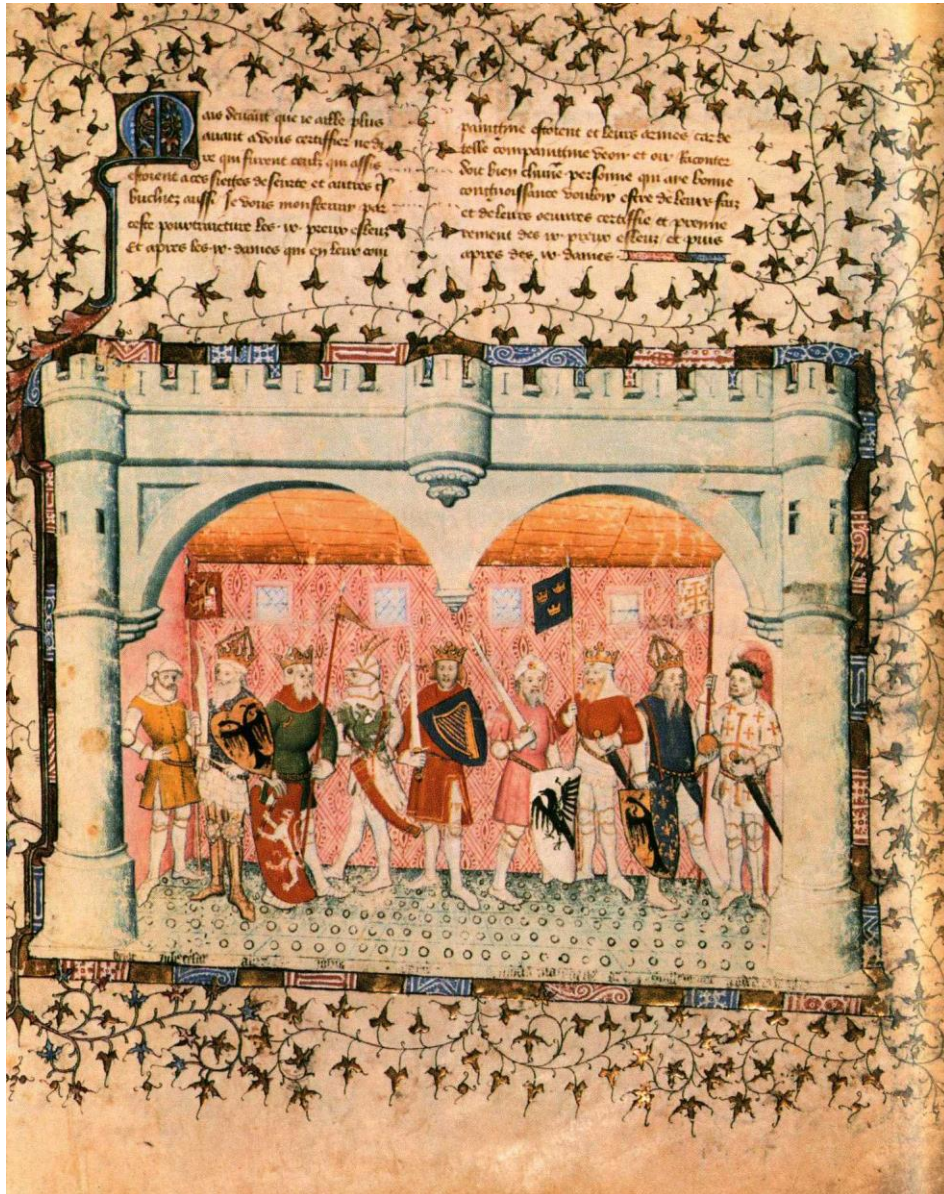 Mais devant que ie aille plus
avant a vous certiffier ne di
re qui furent ceulz qui assis
estoient a ces sieges de seurte et autres
buchiez aussi Je vous monsterray par
ceste pourtraicture les .ix. preux esleuz
Et apres les .ix. dames qui en leur com
paingnie estoient et leurs armes car de
telle compaingnie veoir et oir raconter
doit bien chune personne qui aye bonne
congnoissance vouloir estre de leurs faiz
et de leurs oeuvres certiffie et premie
rement des .ix. preux esleuz et puis
apres des .ix. dames